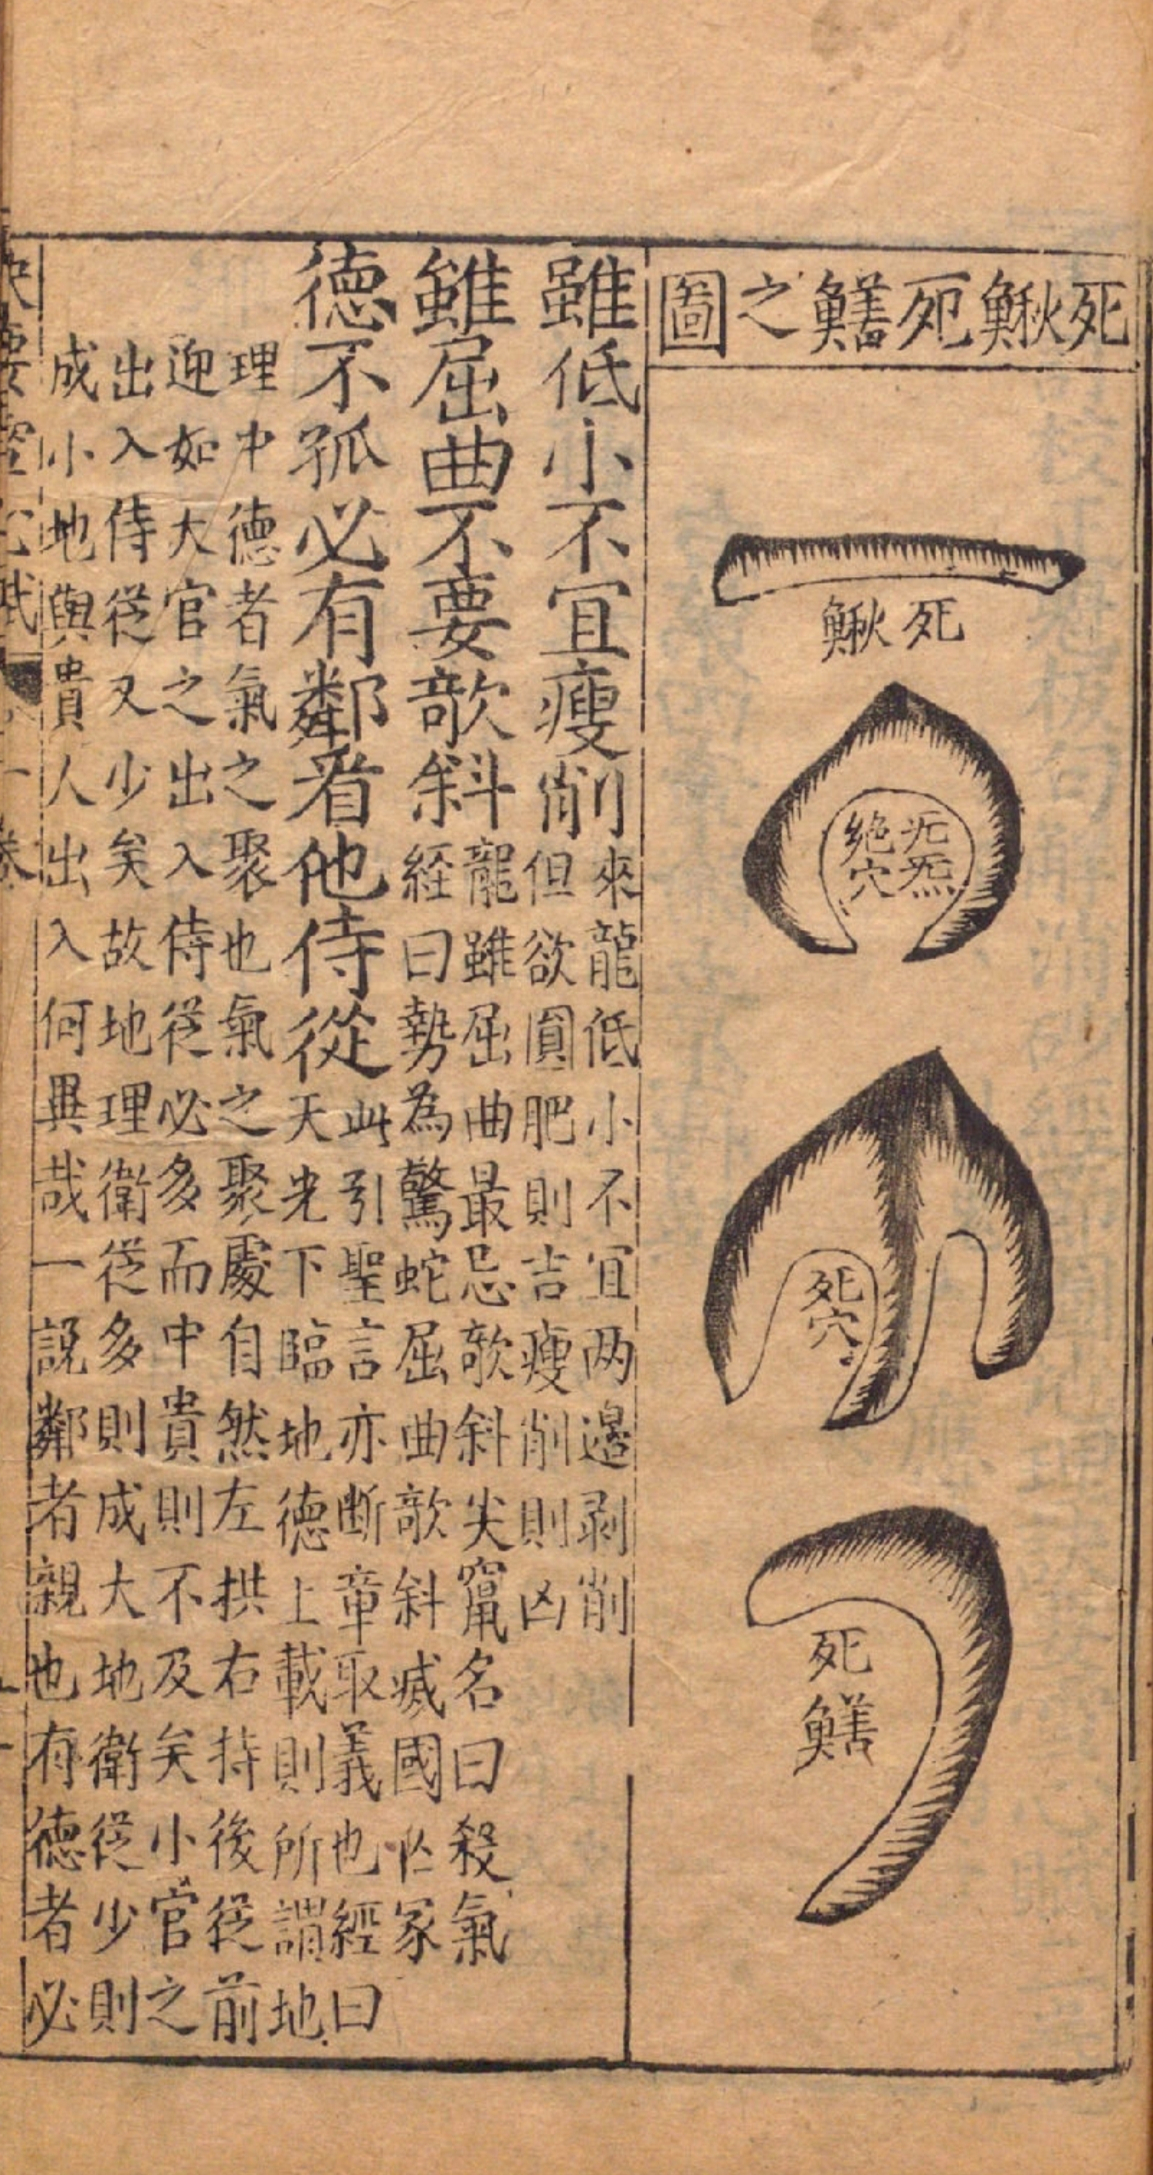 死鰍死鱔之圖
死鰍
死炁
絶穴
死穴
死鱔
雖低小不宜瘦削
來龍低小不宜两邉剥削
但欲圓肥則吉瘦削則凶
雖屈曲不要欹斜
龍雖屈曲最忌欹斜尖竄名曰殺氣
経曰勢為驚蛇屈曲欹斜滅國亡家
德不孤必有鄰看他侍從
此引聖言亦断章取義也經曰
天光下臨地德上載則所謂地
理中德者氣之聚也氣之聚處自然左拱右持後從前
迎如大官之出入侍從必多而中貴則不及矣小官之
出入侍從又少矣故地理衛從多則成大地衛從少則
成小地與貴人出入何異哉一說鄰者親也有德者必